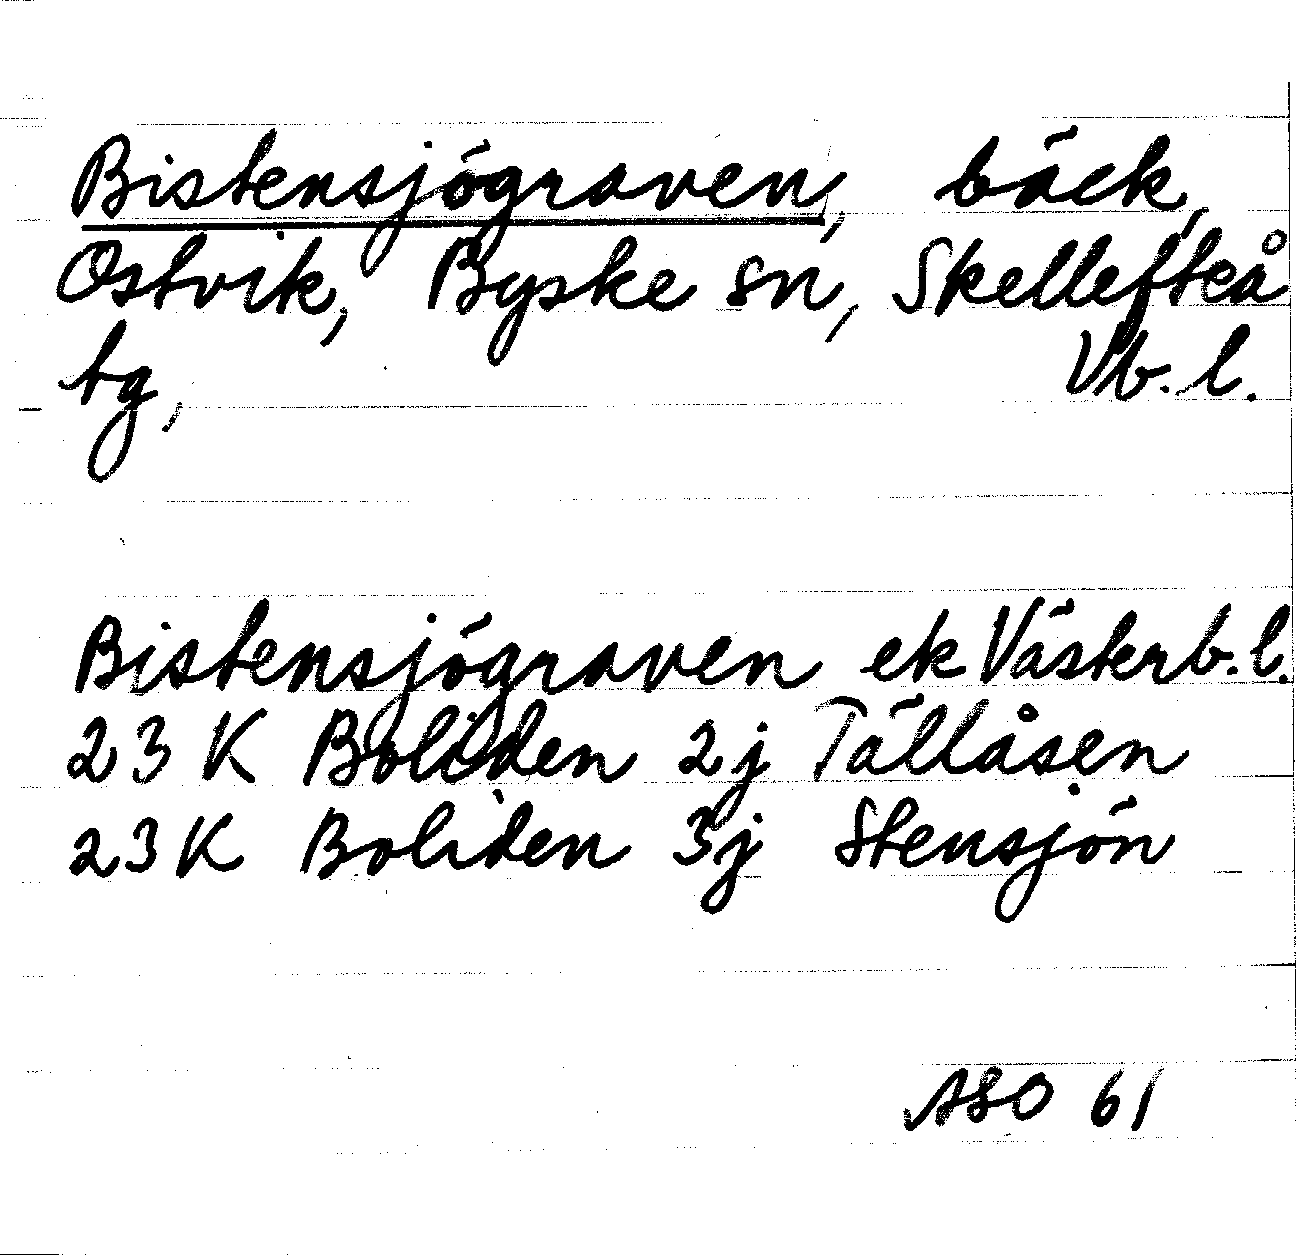 Bistensjögraven, bäck,
Ostvik, Byske sn, Skellefteå
tg, Vb. l.
Bistensjögraven ek Västerb. l.
23 K Boliden 2j Tällåsen
23 K Boliden 3j Stensjön
ASO 61